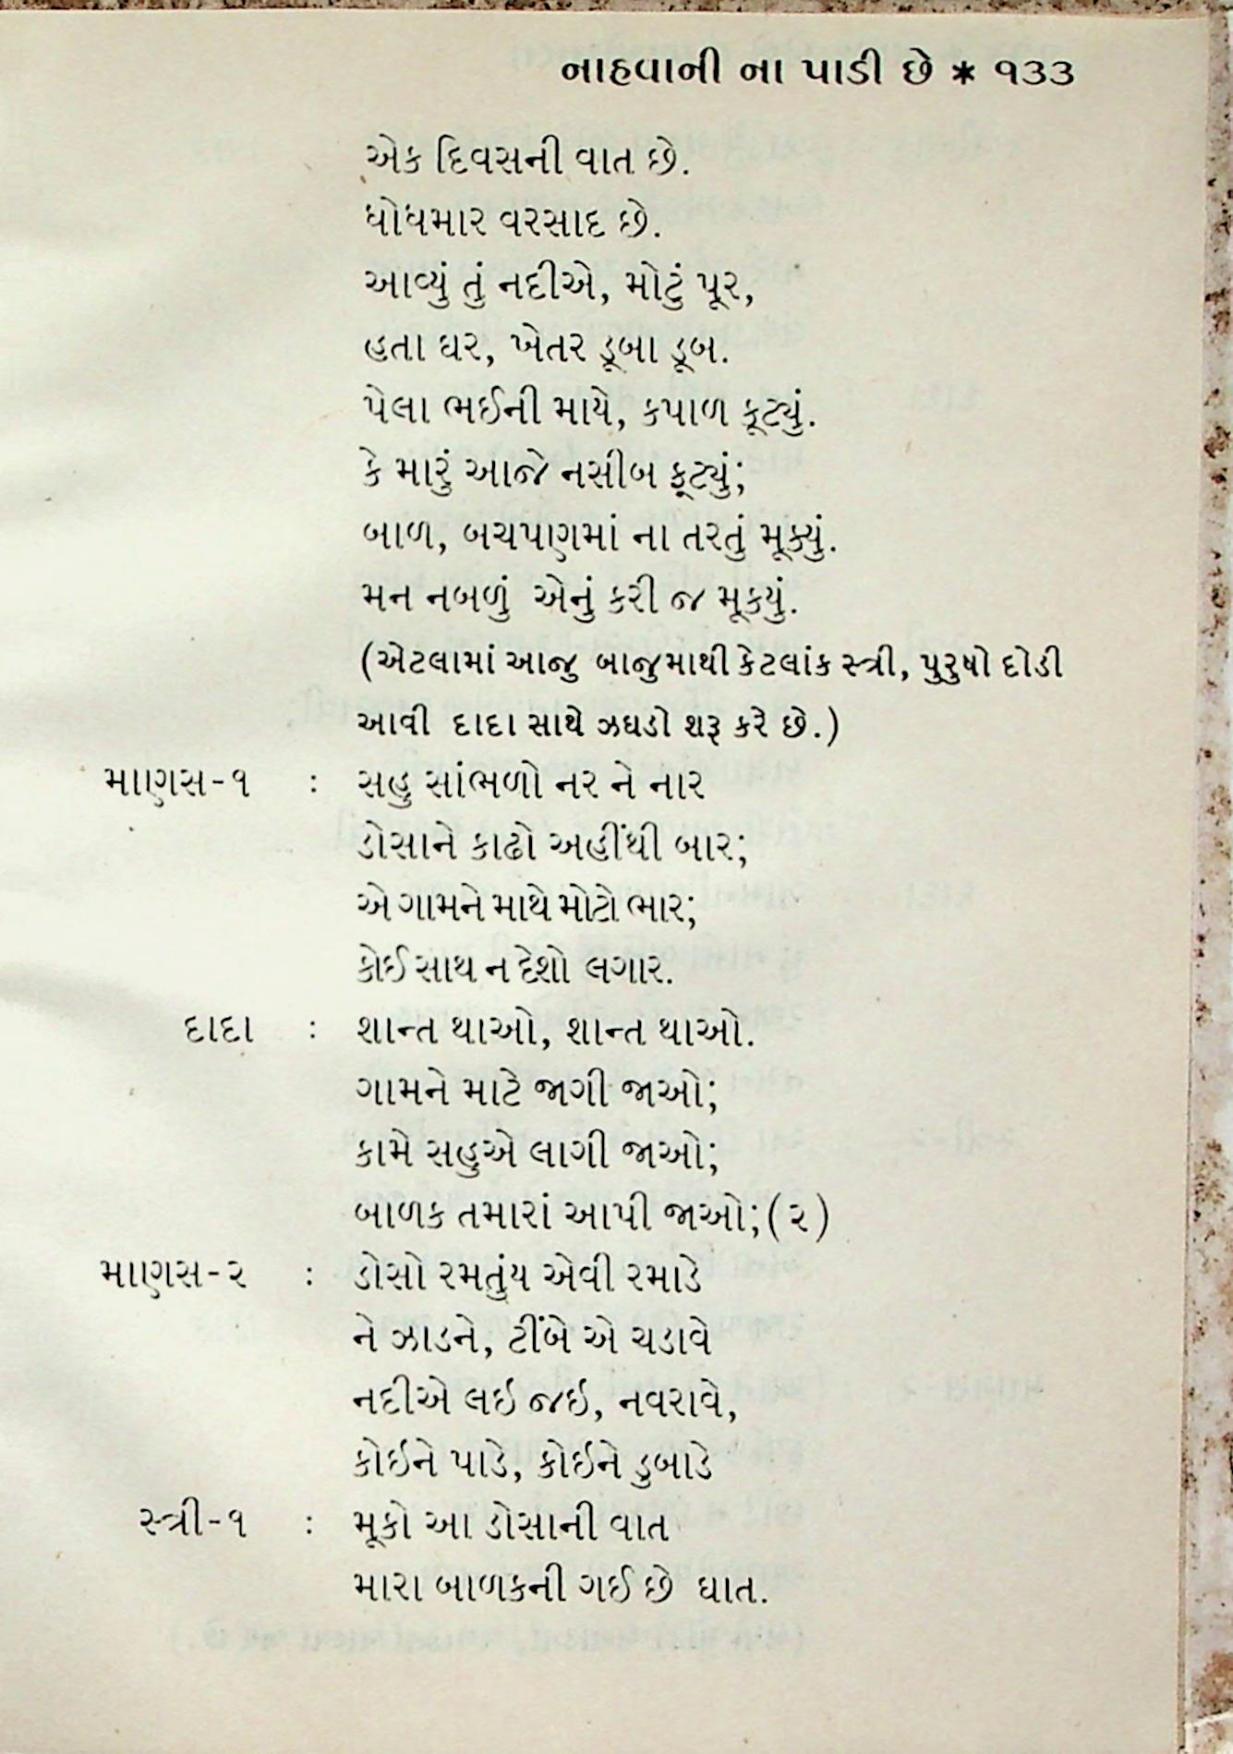 નાહવાની ના પાડી છે * ૧૩૩
એક દિવસની વાત છે.
ધોધમાર વરસાદ છે.
આવ્યું તું નદીએ, મોટું પૂર,
હતા ઘર, ખેતર ડૂબા ડૂબ.
પેલા ભઈની માયે, કપાળ કૂટ્યું.
કે મારું આજે નસીબ ફૂટ્યું;
બાળ, બચપણમાં ના તરતું મૂક્યું.
મન નબળું એનું કરી જ મૂકયું.
(એટલામાં આજુ બાજુમાથી કેટલાંક સ્ત્રી, પુરુષો દોડી
આવી દાદા સાથે ઝઘડો શરૂ કરે છે.)
માણસ-૧ : સહુ સાંભળો નર ને નાર
ડોસાને કાઢો અહીંથી બાર;
એ ગામને માથે મોટો ભાર;
કોઈ સાથ ન દેશો લગાર.
દાદા : શાન્ત થાઓ, શાન્ત થાઓ.
ગામને માટે જાગી જાઓ;
કામે સહુએ લાગી જાઓ;
બાળક તમારાં આપી જાઓ;(ર)
માણસ-ર : ડોસો રમતુંય એવી રમાડે
ને ઝાડને, ટીંબે એ ચડાવે
નદીએ લઇ જઇ, નવરાવે,
કોઇને પાડે, કોઇને ડુબાડે
સ્ત્રી-૧ : મૂકો આ ડોસાની વાત
મારા બાળકની ગઈ છે ઘાત.